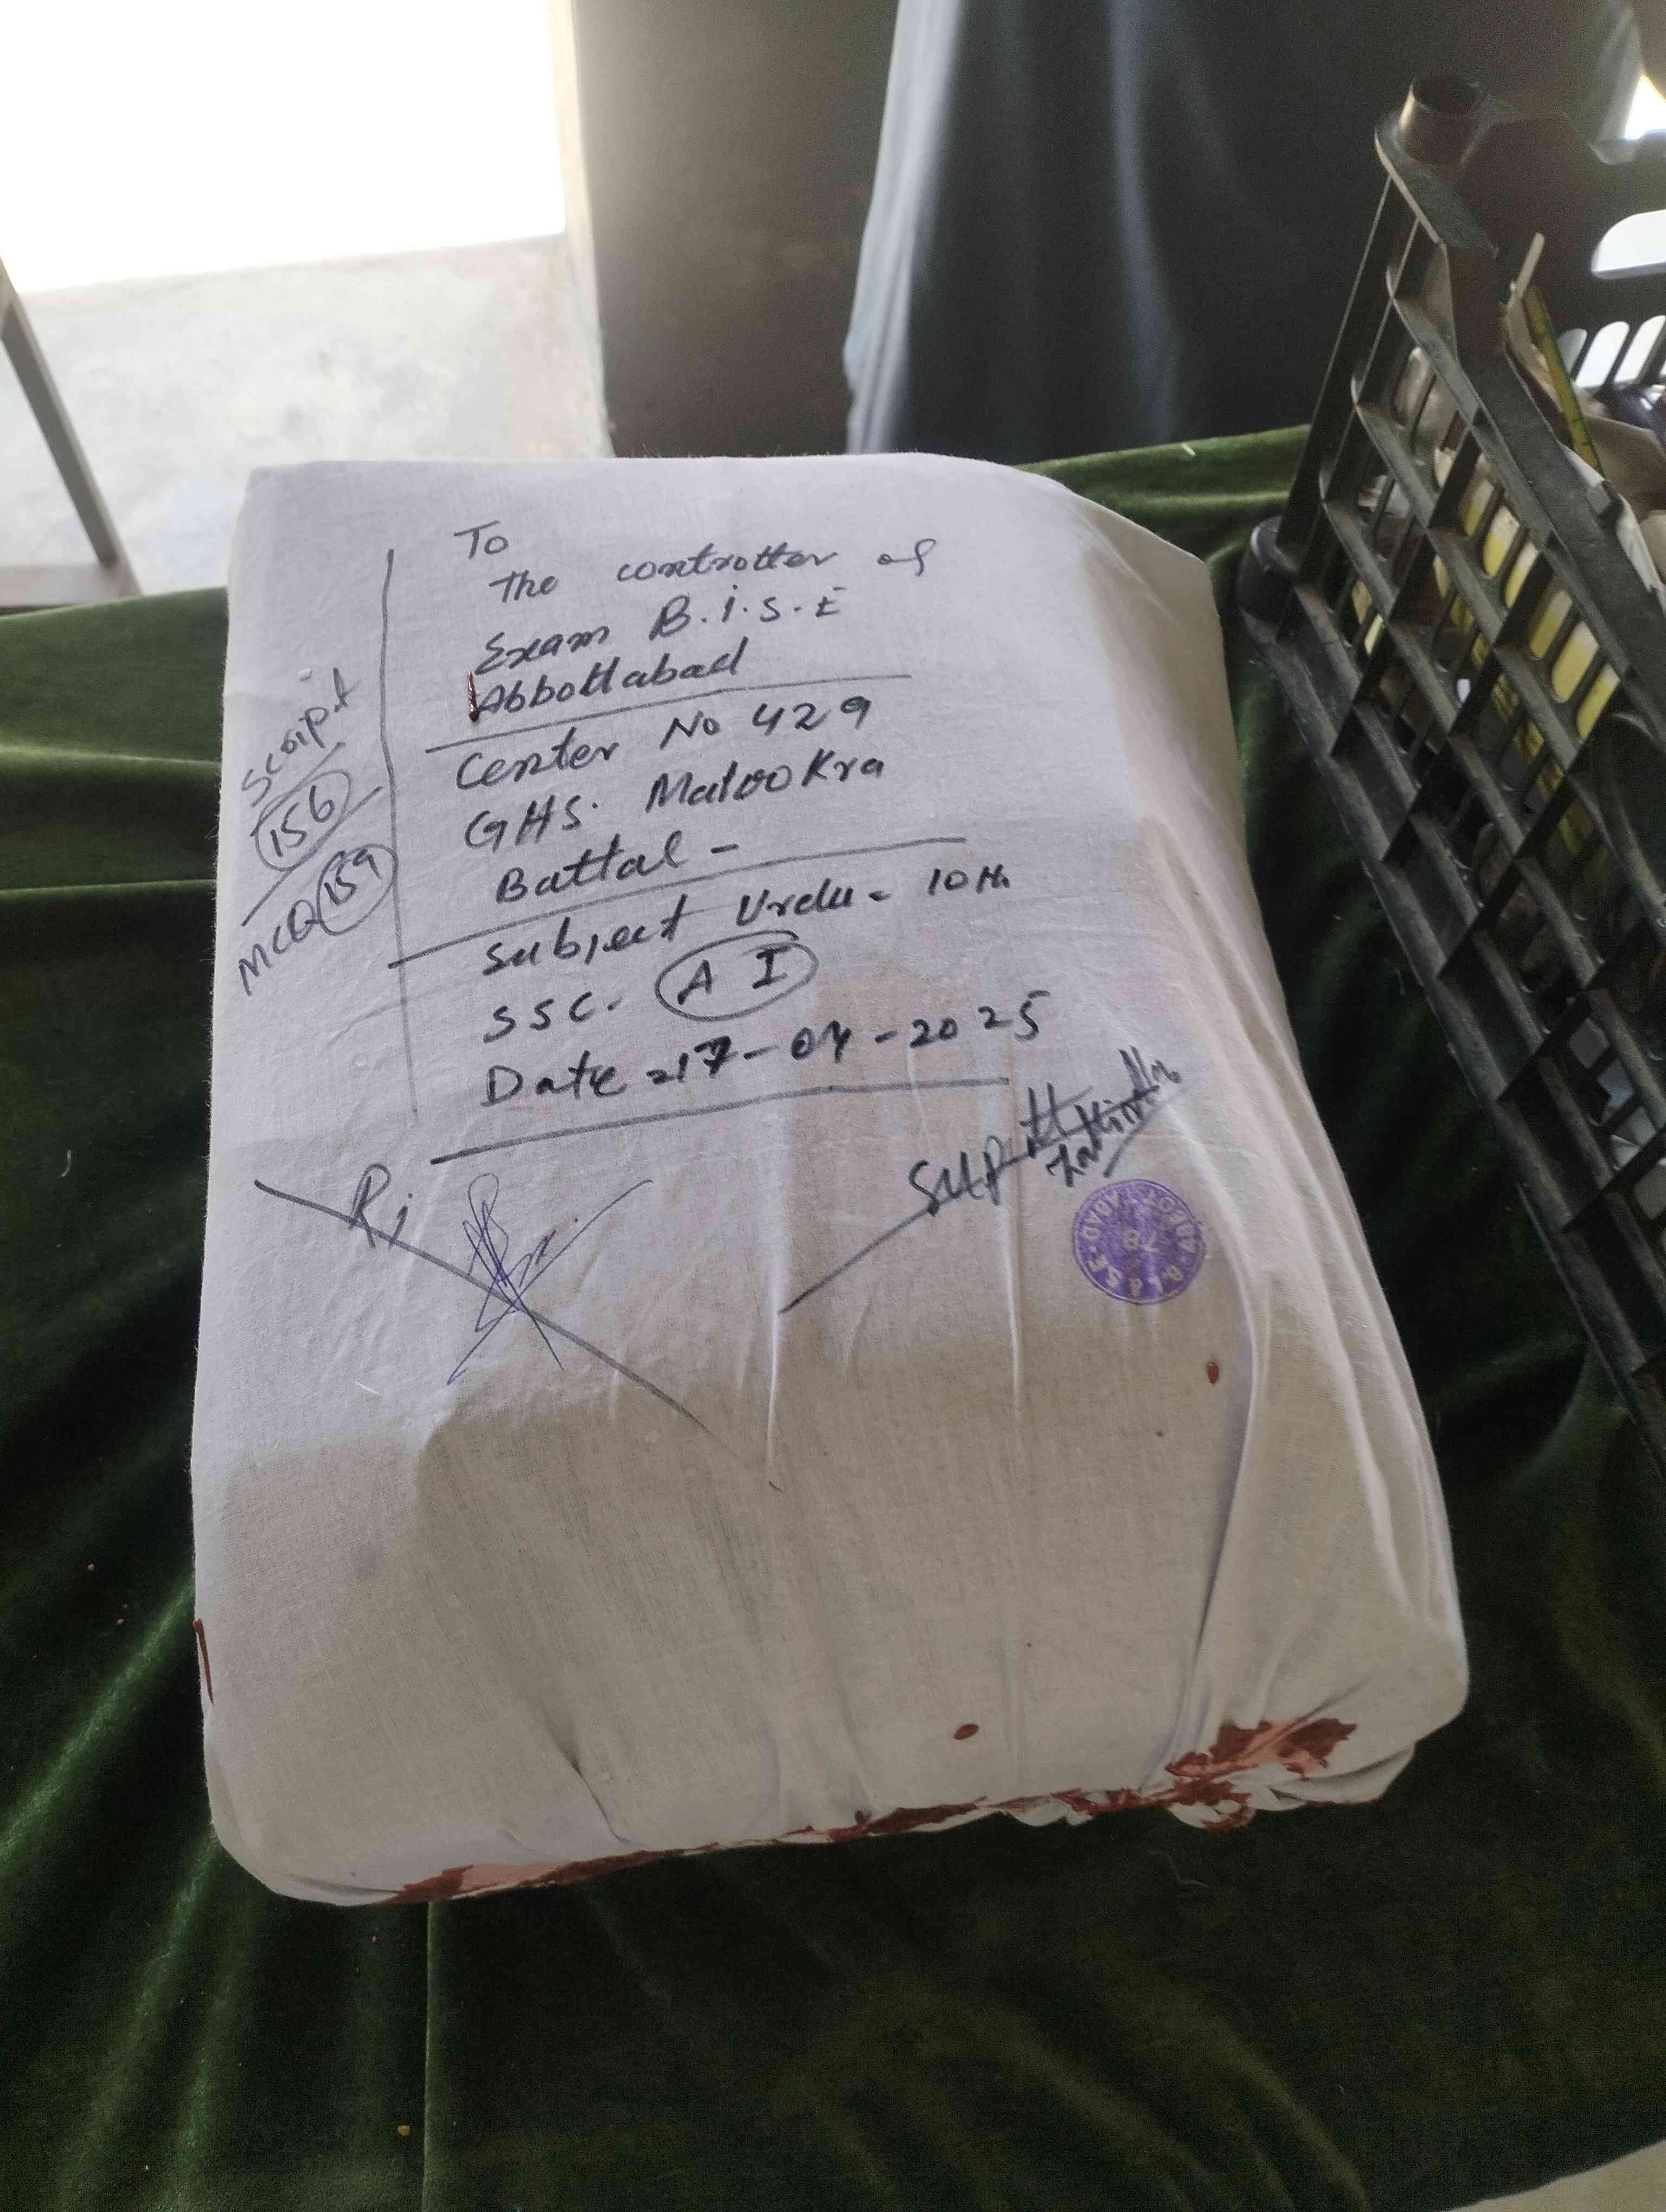 To
The controller of
Exam B.I.S.E
Abbottabad
Center No 429
GHS. Malookra
Battal -
Subject Urdu - 10th
SSC. A I
Date = 17-04-2025
Script
156
MCQ 159
Ri
Supdtt